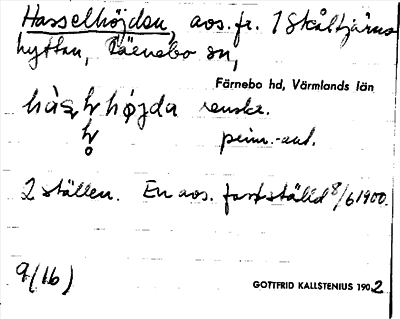 Hasselhöjden, avs. fr. 1 Skåltjärns-
hyttan, Färnebo sn,
Färnebo hd, Värmlands län
höjda
2 ställen. En avs. fastställd 8/6 1900.
9/(16)
GOTTFRID KALLSTENIUS 1902